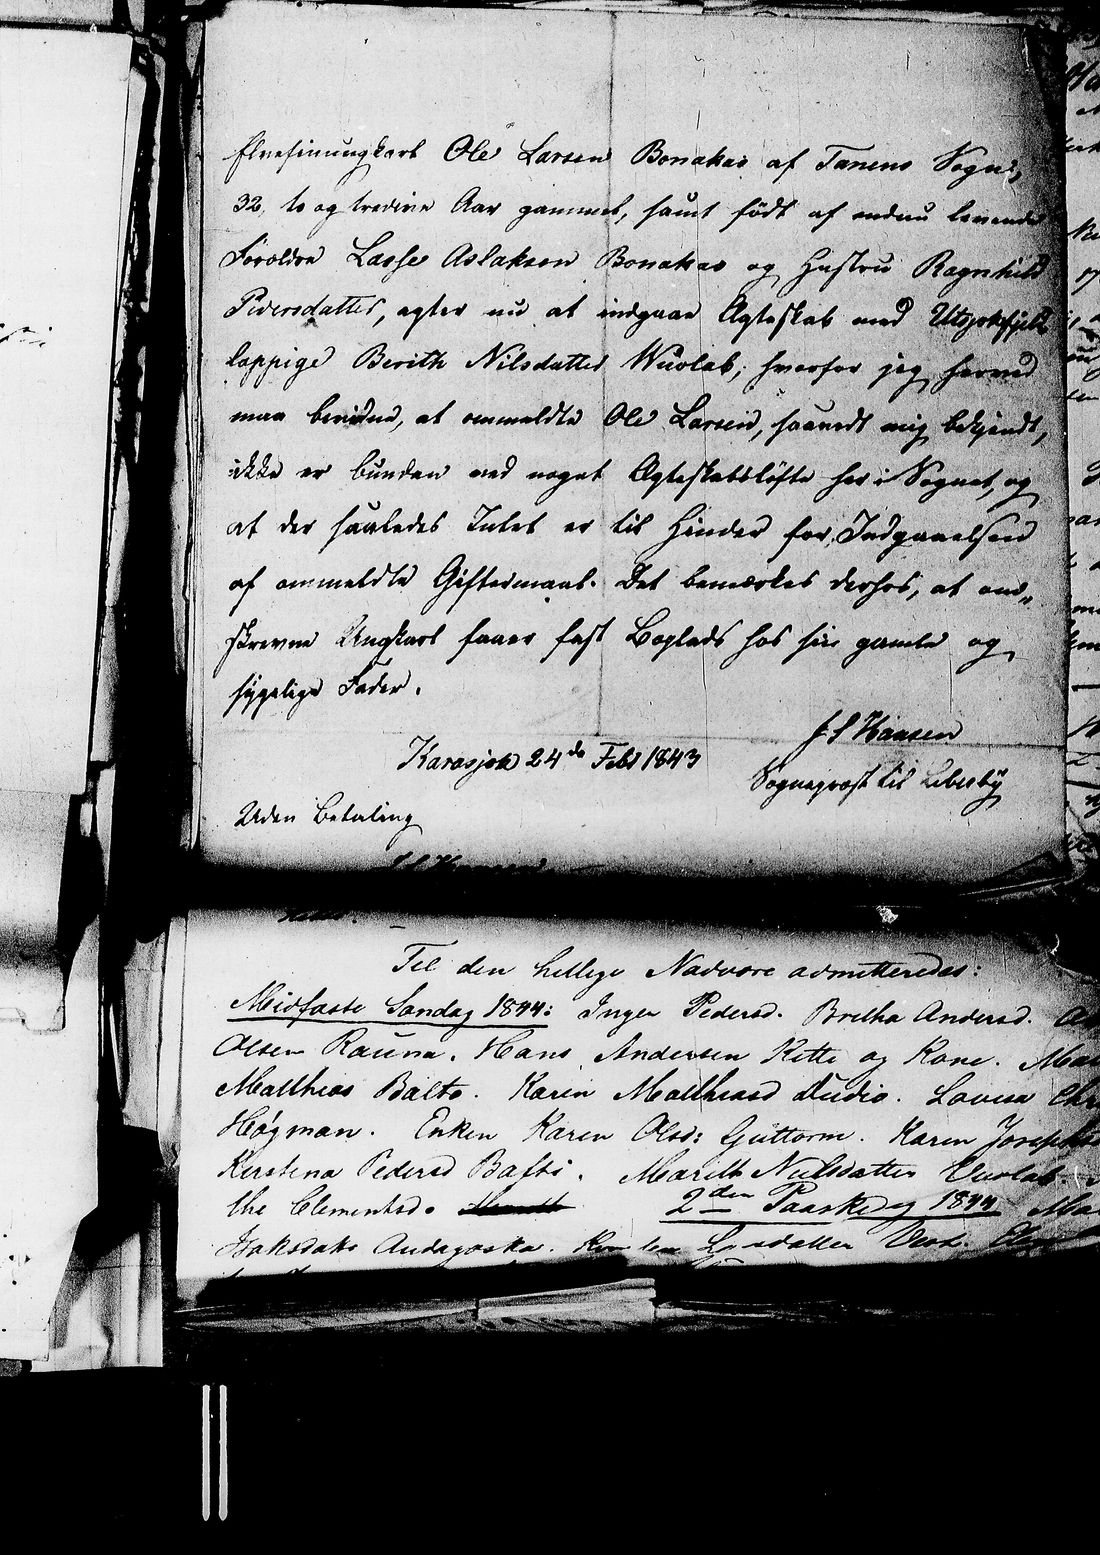 Elvefinungkarl Ole Larsen Bonakas af Tanens Sogn,
32, to og tredive Aar gammel, samt født af endnu levende
Forældre Lasse Aslaksen Bonakas og Hustru Ragnhild
Piersdatter, agter nu at indgaae Ægteskab med Utsjoksfjeld
lappige Berith Nilsdatter Wuolab, hvorfor jeg herved
maa bevidne, at ommeldte Ole Larsen, saavidt mig bekjendt,
ikke er bunden ved noget Ægteskabsløfte her i Sognet, og
at der saaledes Intet er til Hinder for Indgaaelsen
af ommeldte Giftermaal. Det bemærkes derhos, at om„
skrevne Ungkarl faaer fast Boplads hos sin gamle og
sygelige Fader.
J S Hansen
Karasjok 24de Febr 1843
Sognepræst til Lebesby
Uden Betaling
Til den hellige Nadvere admitteredes:
Midfaste Søndag 1844: Inger Pedersd. Bretha Andersd.
Olsen Rauna. Hans Andersen Kitti og Kone.
Matthias Balto. Karen Matthiasd Dudio. Lovisa
Høgman. Enken Karen Olsd: Guttorm. Karen Josephsd
Kerstena Pedersd Balto. Mareth Nielsdatter Vuolab.
the Clementsd. 2den Paaskedag 1844
Isaksdatr Andagoska. datter